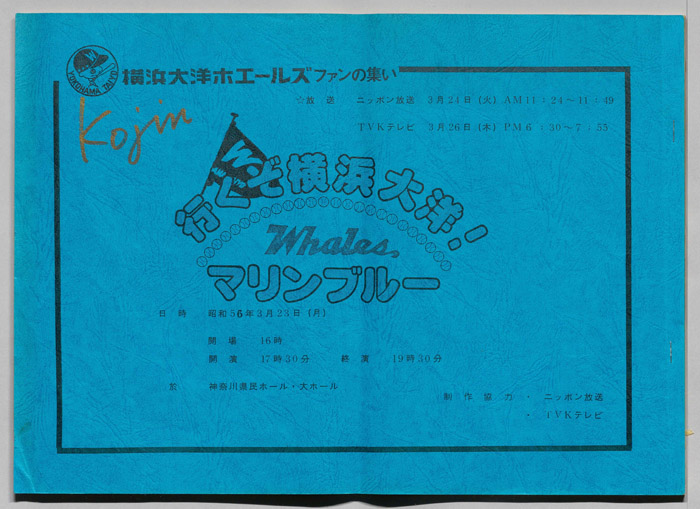 YOKOHAMA TAIYO
横浜大洋ホエールズファンの集い
☆放送 ニッポン放送 3月24日(火)AM11:24〜11:49
TVKテレビ 3月26日(木)PM6:30〜7:55
Kojin
行くぞ横浜大洋!
Whales.
マリンブルー
日時 昭和56年3月23日(月)
開場 16時
開演 17時30分 終演 19時30分
於 神奈川県民ホール・大ホール
制作協力・ニッポン放送
・TVKテレビ